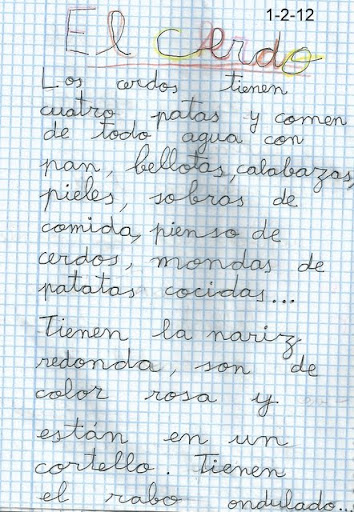 1-2-12
El cerdo
Los cerdos tienen
cuatro patas y comen
de todo agua con
pan, bellotas, calabazas,
pieles, sobras de
comida, pienso de
cerdos, mondas de
patatas cocidas...
Tienen la nariz
redonda, son de
color rosa y
están en un
cortello. Tienen
el rabo ondulado...